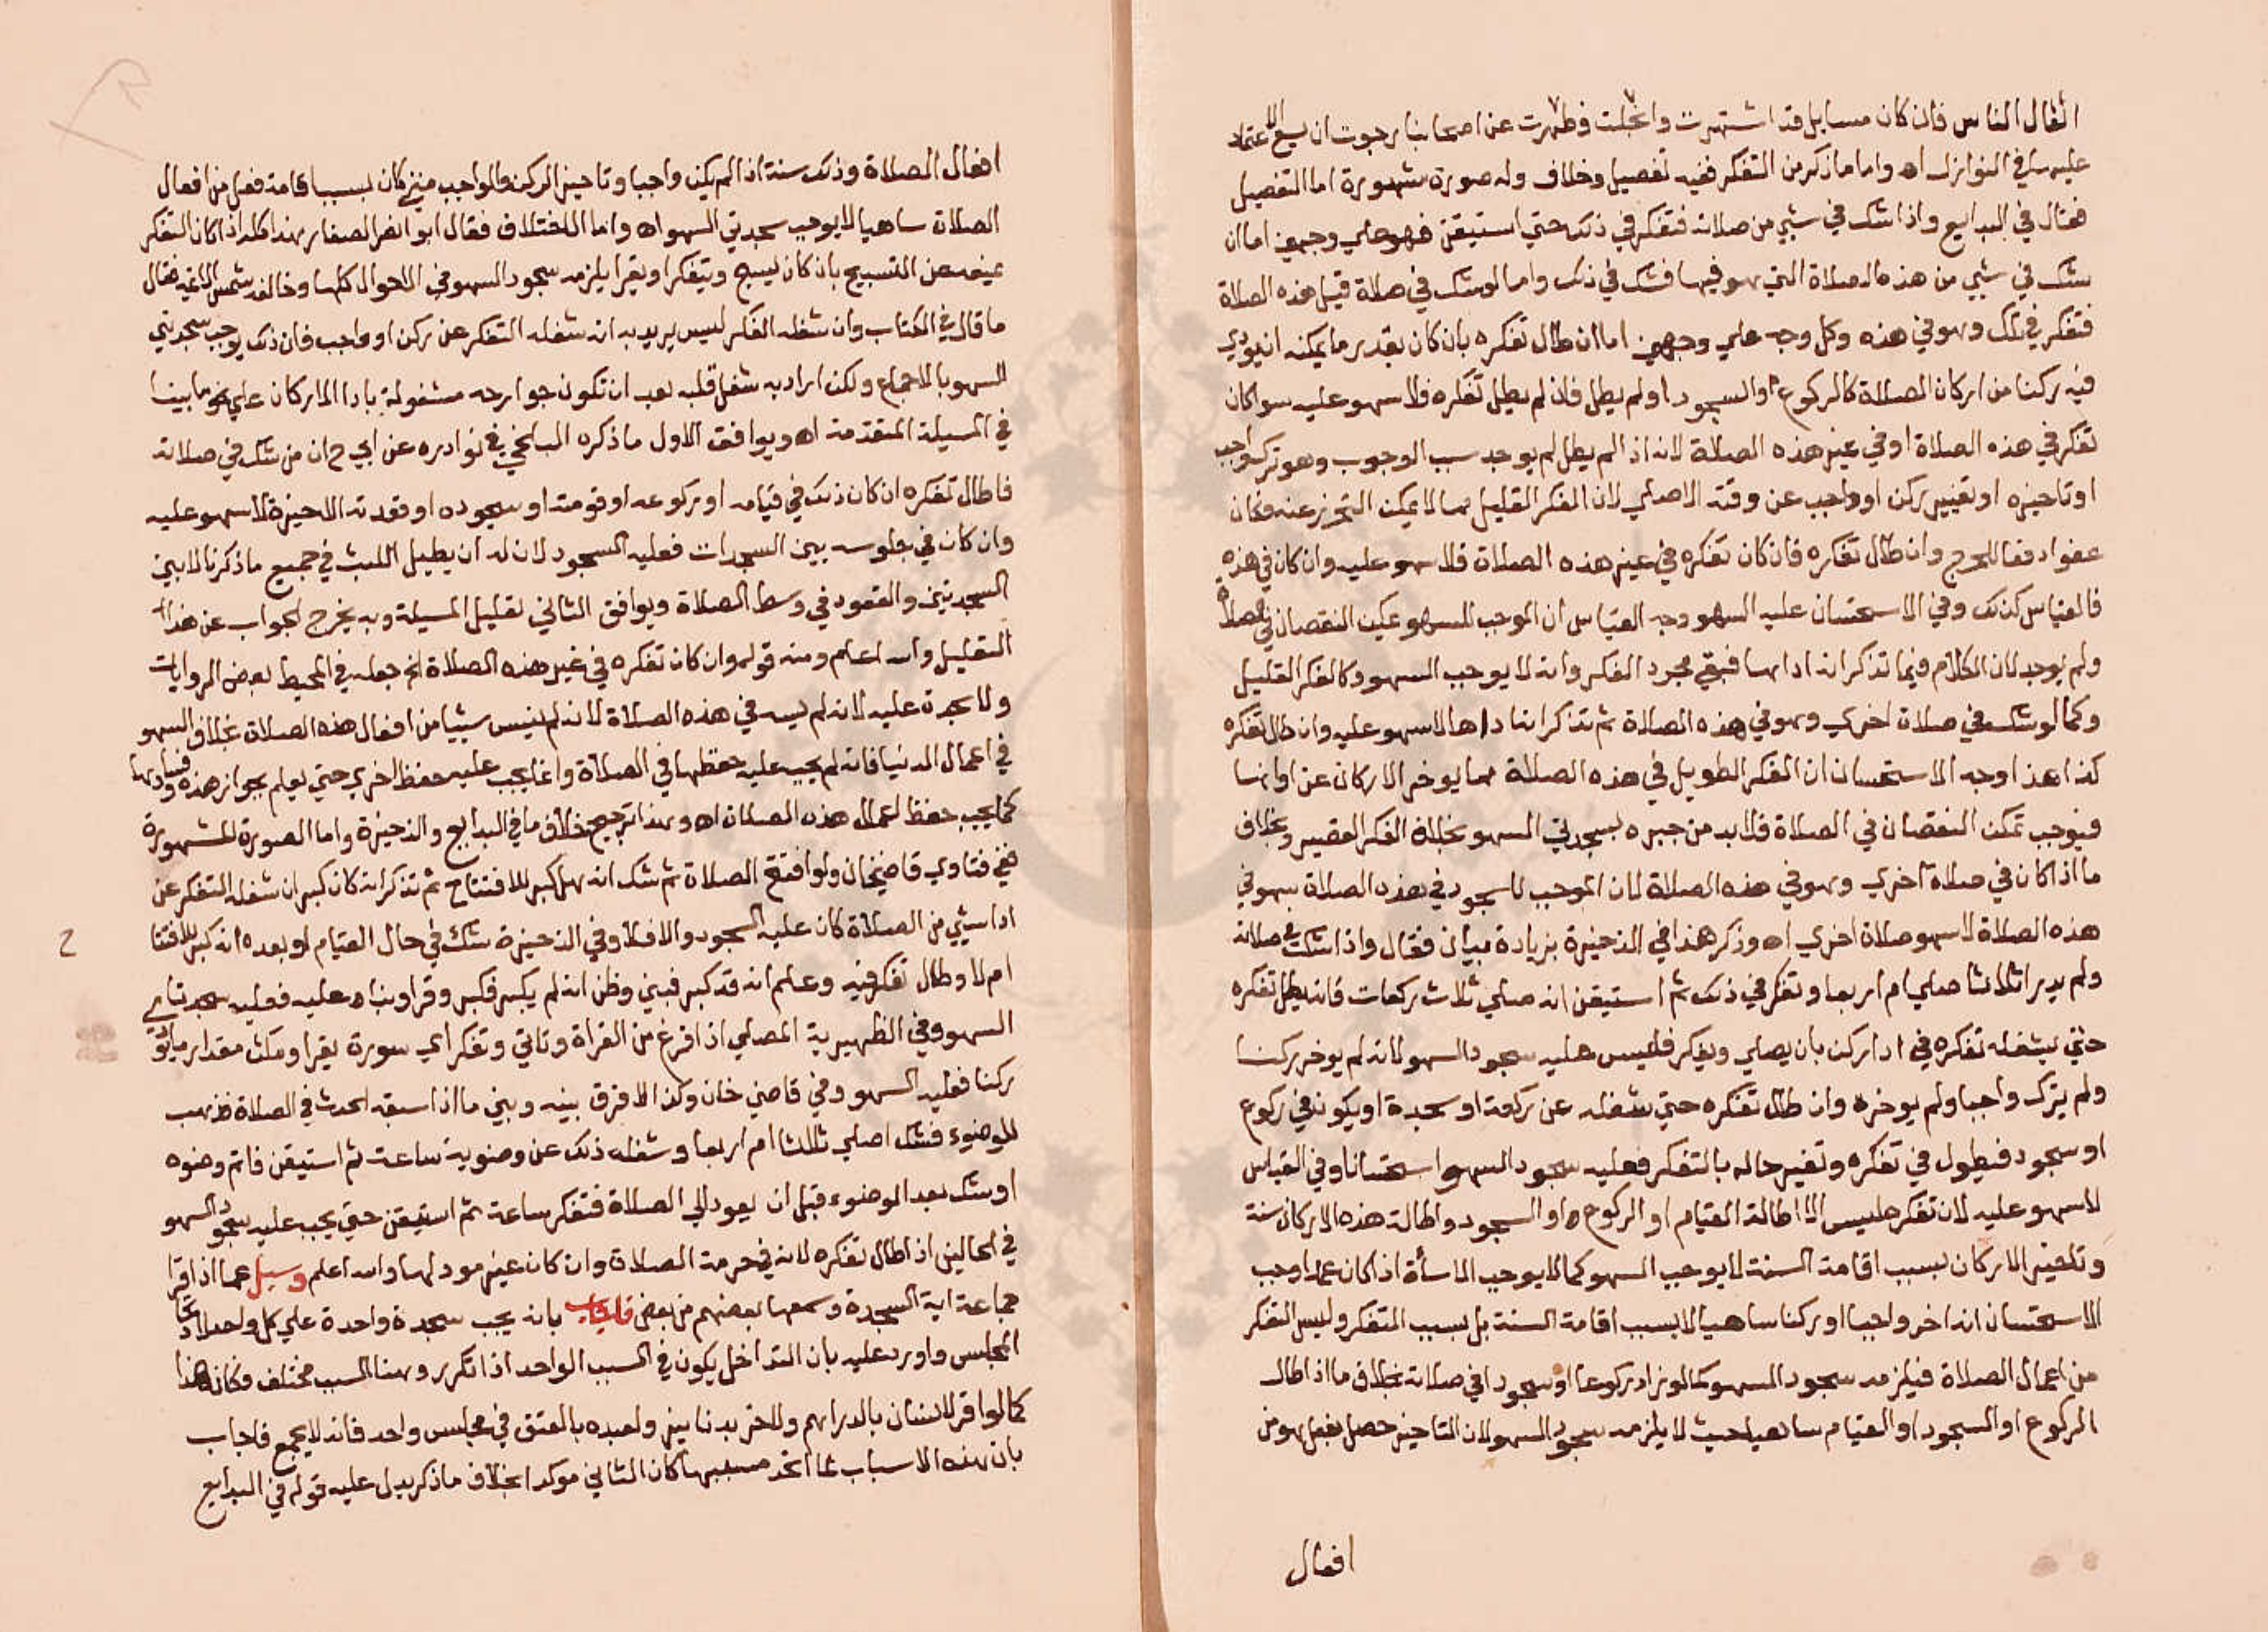 افعال الناس فان كان مسايل قد اشتهرت وانجلت وظهرت عن اصحابنا رجوت ان يسع الاعتماد
عليها في النوازل اه واما ما ذكر من التفكر ففيه تفصيل وخلاف وله صورة مشهورة اما التفصيل
فقال في البدايع واذا شك في شيي من صلاته فتفكر في ذلك حتي استيقن فهو علي وجهين اما ان
شك في شيي من هذه الصلاة التي هو فيها فشك في ذلك واما لو شك في صلاة قبل هذه الصلاة
فتفكر في تلك وهو في هذه وكل وجه علي وجهين اما ان طال تفكره بان كان بقدر ما يمكنه ان يودي
فيه ركنا من اركان الصلاة كالركوع او السجود او لم يطل فان لم يطل تفكره فلا سهو عليه سوا كان
تفكر في هذه الصلاة او في غير هذه الصلاة لانه اذا لم يطل لم يوجد سبب الوجوب وهو ترك واجب
او تاخيره او تغيير ركن او واجب عن وقته الاصلي لان الفكر القليل مما لا يمكن التحرز عنه فكان
عفوا دفعا للحرج وان طال تفكره فان كان تفكره في غير هذه الصلاة فلا سهو عليه وان كان في هذه
فالقياس كذلك وفي الاستحسان عليه السهو وجه القياس ان الموجب للسهو تمكن النقصان في الصلاة
ولم يوجد لان الكلام فيما تذكر انه اداها فبقي مجرد الفكر وانه لا يوجب السهو وكالفكر القليل
وكما لو شك في صلاة اخري وهو في هذه الصلاة ثم تذكر انه اداها لا سهو عليه وان طال تفكره
كذا هذا وجه الاستحسان ان الفكر الطويل في هذه الصلاة مما يوخر الاركان عن اوانها
فيوجب تمكن النقصان في الصلاة فلا بد من جبره بسجدتي السهو بخلاف الفكر القصير وبخلاف
ما اذا كان في صلاة اخري وهو في هذه الصلاة لان الموجب للسجود في هذه الصلاة سهو في
هذه الصلاة لا سهو صلاة اخري اه وذكر هذا في الذخيرة بزيادة بيان فقال واذا شك في صلاته
ولم يدر اثلاثا صلي ام اربعا وتفكر في ذلك ثم استيقن انه صلي ثلاث ركعات فان لم يطل تفكره
حتي يشغله تفكره في ادا ركن بان يصلي ويفكر فليس عليه سجود السهو لانه لم يوخر ركنا
ولم يترك واجبا ولم يوخره وان طال تفكره حتي شغله عن ركعة او سجدة او يكون في ركوع
او سجود فيطول في تفكره وتغير حاله بالتفكر فعليه سجود السهو استحسانا وفي القياس
لا سهو عليه لان تفكره ليس الا اطالة القيام او الركوع او السجود واطالة هذه الاركان سنة
وتاخير الاركان بسبب اقامة السنة لا يوجب السهو كما لا يوجب الاساة اذا كان عمدا وجه
الاستحسان انه اخر واجبا او ركنا ساهيا لا بسبب اقامة السنة بل بسبب التفكر وليس التفكر
من اعمال الصلاة فيلزمه سجود السهو كما لو زاد ركوعا او سجودا في صلاته بخلاف ما اذا اطال
الركوع او السجود او القيام ساهيا حيث لا يلزمه سجود السهو لان التاخير حصل بفعل هو من
افعال
افعال الصلاة وذلك سنة اذا لم يكن واجبا وتاخير الركن والواجب متي كان بسبب اقامة فعل من افعال
الصلاة ساهيا لا يوجب سجدتي السهو اه واما الاختلاف فقال ابو النصر الصفار هذا كله اذا كان التفكر
يمنعه عن التسبيح بان كان يسبح ويتفكر او يقرا يلزمه سجود السهو في الاحوال كلها وخالفه شمس الايمة فقال
ما قال في الكتاب وان شغله الفكر ليس يريد به انه شغله التفكر عن ركن او واجب فان ذلك يوجب سجدتي
السهو بالاجماع ولكن اراد به شغل قلبه بعد ان تكون جوارحه مشغولة بادا الاركان علي نحو ما بينا
في المسيلة المتقدمة اه ويوافق الاول ما ذكره البلخي في نوادره عن ابي ح ان من شك في صلاته
فاطال تفكره ان كان ذلك في قيامه او ركوعه او قومته او سجوده او قعدته الاخيرة لا سهو عليه
وان كان في جلوسه بين السجدات فعليه السجود لان له ان يطيل اللبث في جميع ما ذكرنا الا بين
السجدتين والقعود في وسط الصلاة ويوافق الثاني تعليل المسيلة وبه يخرج الجواب عن هذا
التعليل والله اعلم ومنه قوله وان كان تفكره في غير هذه الصلاة الخ جعله في المحيط بعض الروايات
ولا سجدة عليه لانه لم يسه في هذه الصلاة لانه لم ينس شييا من افعال هذه الصلاة بخلاف السهو
في اعمال الدنيا فانه لم يجب عليه حفظها في الصلاة وانما يجب عليه حفظ اخري حتي يعلم بجواز هذه وفسادها
كما يجب حفظ اعمال هذه الصلاة اه وهذا ترجيح خلاف ما في البدايع والذخيرة واما الصورة المشهورة
ففي فتاوي قاضيخان ولو افتتح الصلاة ثم شك انه هل كبر للافتتاح ثم تذكر انه كان كبر ان شغله التفكر عن
ادا شيي من الصلاة كان عليه السجود والا فلا وفي الذخيرة شك في حال القيام او بعده انه كبر للافتتا
ام لا وطال تفكره فيه وعلم انه قد كبر فبني وظن انه لم يكبر فكبر وقرا وبناه عليه فعليه سجدتا
السهو وفي الظهيرية المصلي اذا فرغ من القراة وتاني وتفكر اي سورة يقرا ومكث مقدار ما
ركنا فعليه السهو وفي قاضي خان وكذا لا فرق بينه وبين ما اذا سبقه الحدث في الصلاة فذهب
للوضوء فشك اصلي ثلاثا ام اربعا وشغله ذلك عن وضويه ساعة ثم استيقن فاتم وضوه
او شك بعد الوضوء قبل ان يعود الي الصلاة فتفكر ساعة ثم استيقن حتي يجب عليه سجود السهو
في الحالين اذا طال تفكره لانه في حرمة الصلاة وان كان غير مود لها والله اعلم وسيل عما اذا قرا
جماعة اية السجدة وسمعها بعضهم من بعض فاجاب بانه يجب سجدة واحدة علي كل واحد لاتحاد
المجلس واورد عليه بان التداخل يكون في السبب الواحد اذا تكرر وهنا السبب مختلف فكان هذا
كما لو اقر لانسان بالدراهم ولاخر بدنانير ولعبده بالعتق في مجلس واحد فانه لا يجمع فاجاب
بان هذه الاسباب لما اتحد مسببها كان الثاني موكدا بخلاف ما ذكر يدل عليه قوله في البدايع